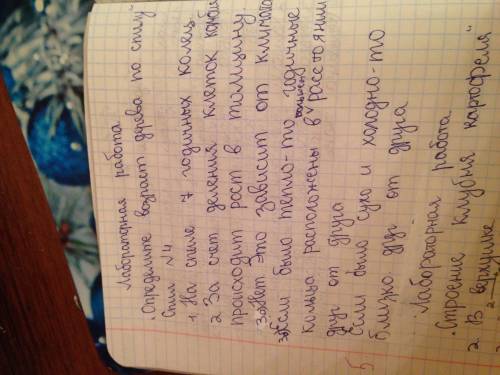 Лабораторная работа
"Определите возраст дерева по спилу"
Спил №4
1. На спиле 7 годичных колец.
2 За счет деления клеток камбия
происходит рост в толщину.
3. Нет это зависит от климата
Если было тепло-то годичные
кольца расположены в большем расстоянии
друг от друга
Если было сухо и холодно-то
близко друг от друга
Лабораторная работа
"Строение клубня картофеля"
2. В верхушке
5